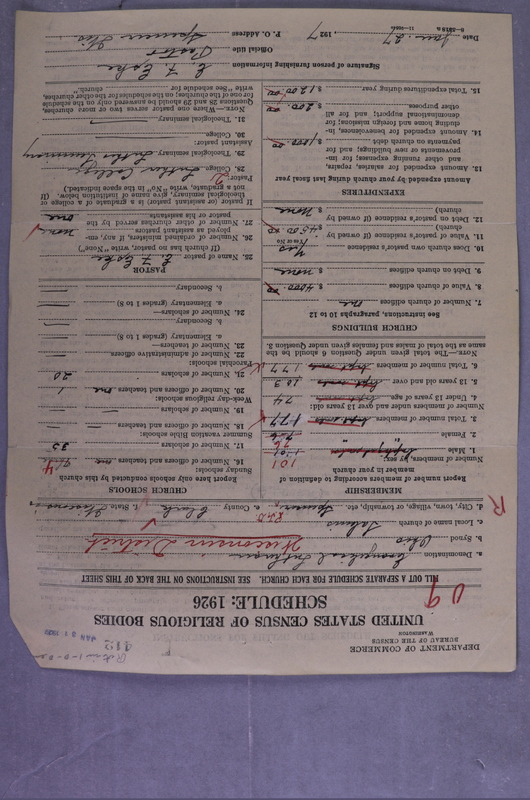 DEPARTMENT OF COMMERCE
BUREAU OF THE CENSUS
WASHINGTON
412
JAN 31 1927
UNITED STATES CENSUS OF RELIGIOUS BODIES
SCHEDULE: 1926
FILL OUT A SEPARATE SCHEDULE FOR EACH CHURCH. SEE INSTRUCTIONS ON THE BACK OF THIS SHEET
a. Denomination Evangelical Lutheran
b. Synod Ohio Wisconsin District
c. Local name of church
d. City, town, village, or township, etc. Spencer R.F.D. e. County Clark f. State Wisconsin
MEMBERSHIP
Report number of members according to definition of member in your church
Number of members, by sex:
1. Male 101
2. Female 76
3. Total number of members 177
Number of members under and over 13 years old:
4. Under 13 years of age 74
5. 13 years old and over 103
6. Total number of members 177
NOTE.—The total given under Question 6 should be the same as the total of males and females given under Question 3.
CHURCH BUILDINGS
See instructions, paragraphs 10 to 12
7. Number of church edifices one
8. Value of church edifices $ 4000.00
9. Debt on church edifices $ none
10. Does church own pastor's residence Yes
(Yes or No)
11. Value of pastor's residence (if owned by church) $ 4500.00
12. Debt on pastor's residence (if owned by church) $ none
EXPENDITURES
Amount expended by your church during last fiscal year
13. Amount expended for salaries, repairs, and other running expenses; for improvements or new buildings; and for payments on church debt $ 1000.00
14. Amount expended for benevolences, including home and foreign missions; for denominational support; and for all other purposes $ 200.00
15. Total expenditures during year $ 1200.00
CHURCH SCHOOLS
Report here only schools conducted by this church
Sunday schools:
16. Number of officers and teachers 4
17. Number of scholars 35
Summer vacation Bible schools:
18. Number of officers and teachers —
19. Number of scholars —
Week-day religious schools:
20. Number of officers and teachers one 1
21. Number of scholars 20
Parochial schools:
22. Number of administrative officers —
23. Number of teachers—
a. Elementary (grades 1 to 8) —
b. Secondary —
24. Number of scholars—
a. Elementary (grades 1 to 8) —
b. Secondary —
PASTOR
25. Name of pastor
(If church has no pastor, write "None")
26. Number of ordained ministers, if any, employed as assistant pastors none
27. Number of other churches served by the pastor or his assistants one
If pastor (or assistant pastor) is a graduate of a college or theological seminary, give name of institution below. (If not a graduate, write "No" in the space indicated.)
Pastor:
28. College Luther College
29. Theological seminary Luther Seminary
Assistant pastor:
30. College —
31. Theological seminary —
NOTE.—Where one pastor serves two or more churches, Questions 28 and 29 should be answered only on the schedule for one of the churches; on the schedules for the other churches, write "See schedule for church."
Signature of person furnishing information
Official title Pastor
Date Jan. 27, 1927. P. O. Address Spencer Wis.